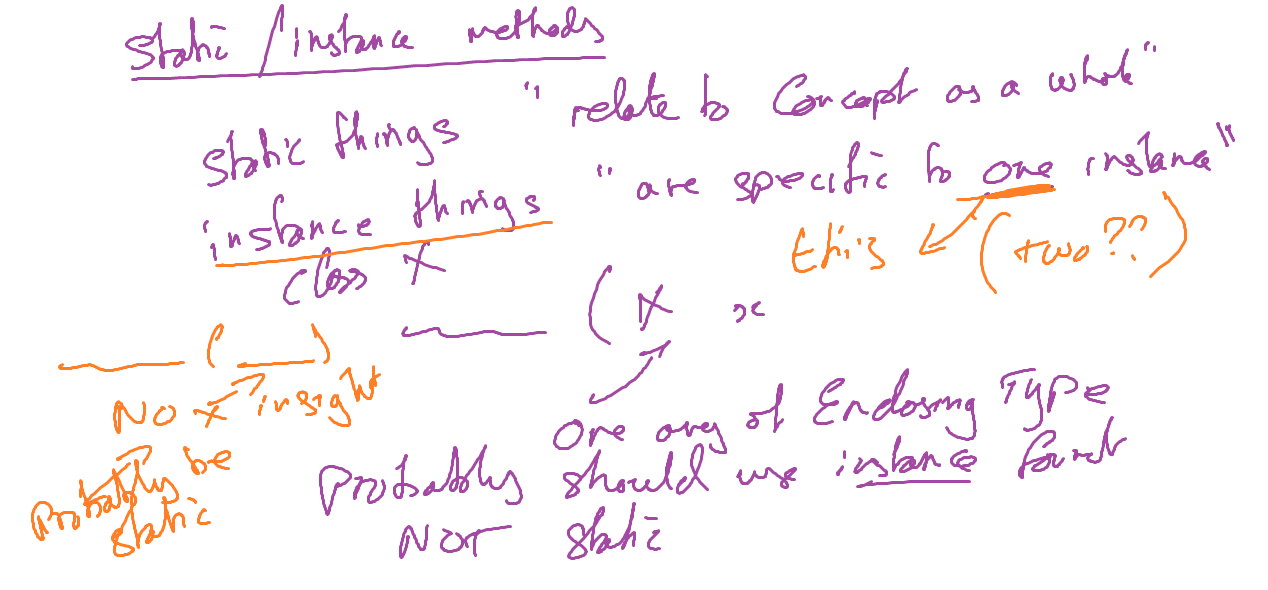 Static / instance methods
Static things " relate to Concept as a whole "
instance things " are specific to one instance "
this (two??)
class X
( ) ( X x
No X in sight
Probably be static
One arg of Enclosing Type
Probably should use instance format
NOT static